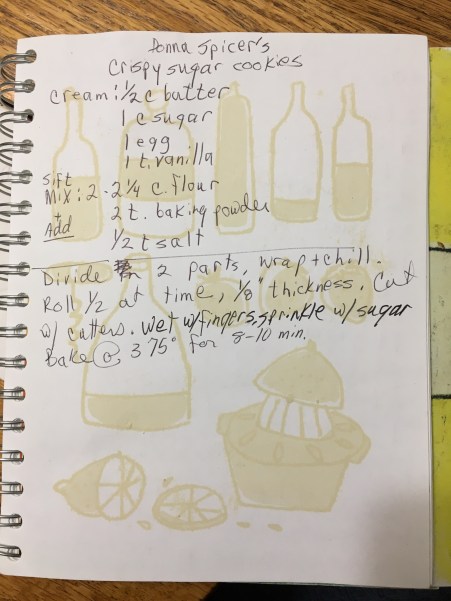 Donna Spicer's
Crispy sugar cookies
Cream: 1/2 c butter
1 c sugar
1 egg
1 t. vanilla
sift
Mix: 2 - 2 1/4 c. flour
+
Add 2 t. baking powder
1/2 t salt
Divide 2 parts, wrap + chill.
Roll 1/2 at time, 1/8" thickness. Cut
w/ cutters. Wet w/fingers, sprinkle w/ sugar
Bake @ 375° for 8-10 min.